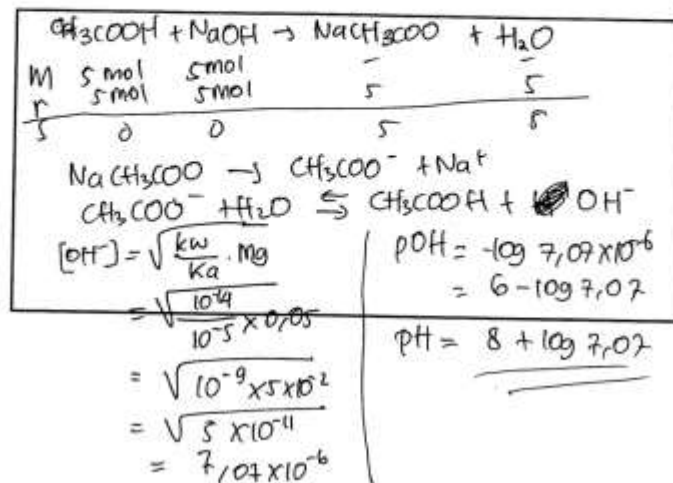 CH₃COOH + NaOH → NaCH₃COO + H₂O
M 5 mol 5 mol - -
r 5 mol 5 mol 5 5
S 0 0 5 5
NaCH₃COO → CH₃COO⁻ + Na⁺
CH₃COO⁻ + H₂O ⇆ CH₃COOH + OH⁻
[OH⁻] = √(kw/Ka . Mg)
= √(10⁻¹⁴/10⁻⁵ × 0,05)
= √(10⁻⁹ × 5 × 10⁻²)
= √(5 × 10⁻¹¹)
= 7,07 × 10⁻⁶
pOH = -log 7,07 × 10⁻⁶
= 6 - log 7,07
pH = 8 + log 7,07